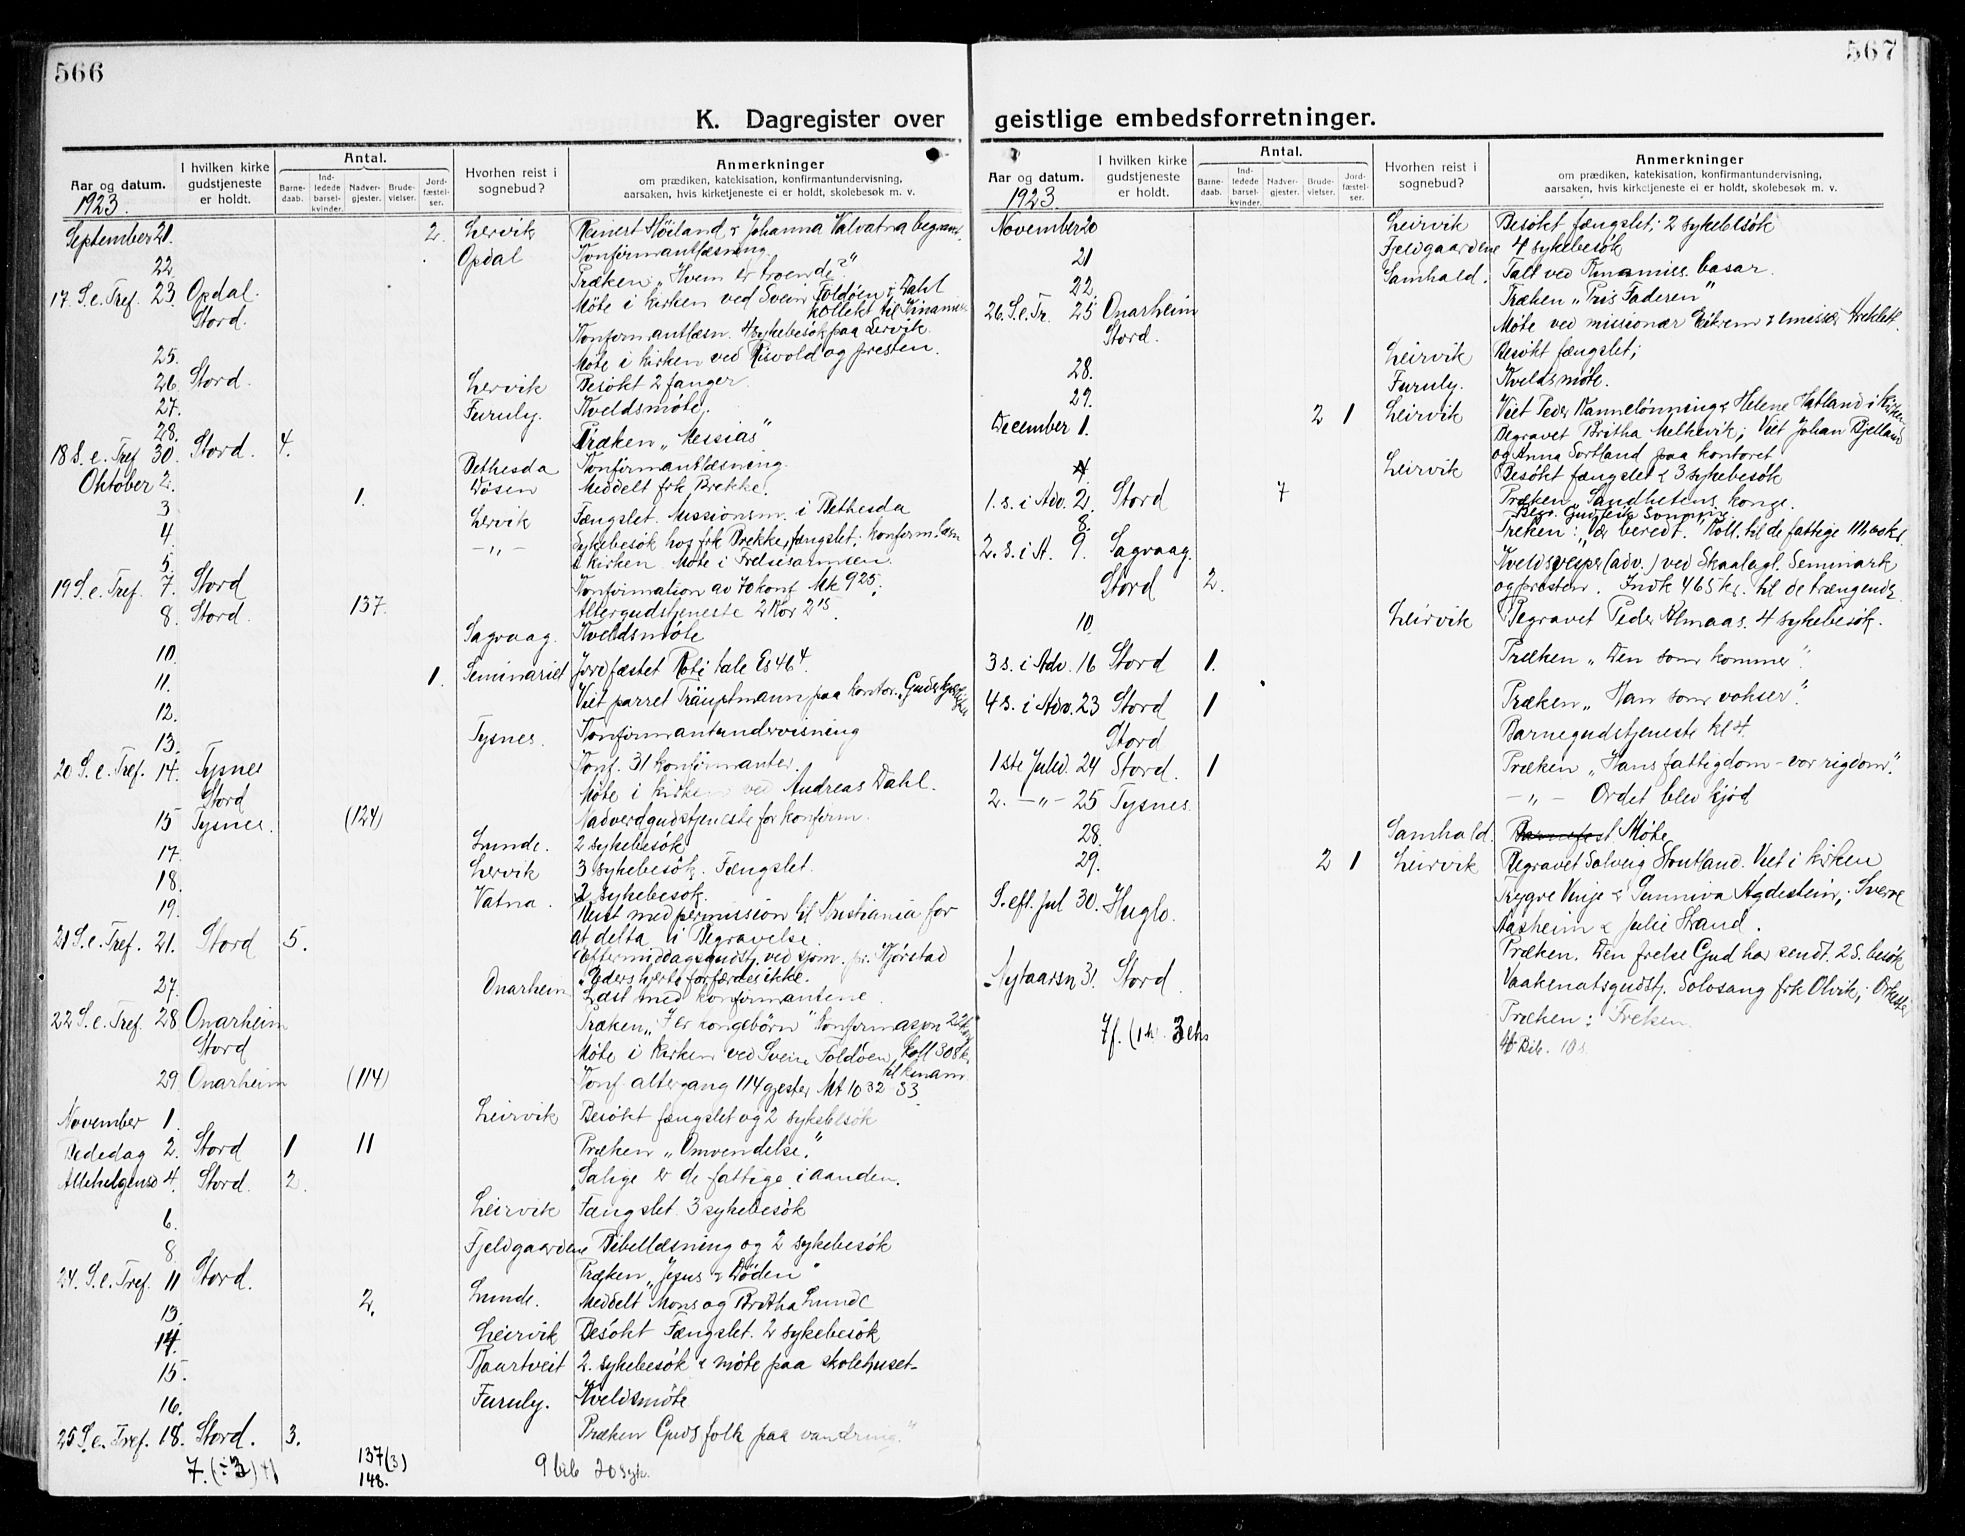 566
K. Dagregister over
Aar og datum.
I hvilken kirke gudstjeneste er holdt.
Antal.
Barne-daab.
Ind-ledede barsel-kvinder.
Nadver-gjester.
Brude-vielser.
Jord-fæstel-ser.
Hvorhen reist i sognebud?
Anmerkninger
om prædiken, katekisation, konfirmantundervisning,
aarsaken, hvis kirketjeneste ei er holdt, skolebesøk m. v.
1923.
September 21. 2. Lervik Reinert Höiland & Johanna Valvatna begravet.
22. Opdal Konfirmantlæsning.
17 S. e. Tref. 23. Opdal. Præken "Hvem er troende?"
Stord. Möte i kirken ved Svein Foldöen & Dahl
kollekt til Kinamis.
25. Konfirmantlæsn. 4 sykebesök paa Lervik.
26. Stord. Möte i kirken ved Risvold og presten.
27. Lervik Besökt 2 fanger.
28. Furuly. Kveldsmöte.
18 S. e. Tref 30. Stord. 4. Præken "Messias"
Oktober 2. Bethesda Konfirmantlæsning.
3 1. Dösen Meddelt frk Brekke.
4. Lervik Fængslet. Missionsm. i Bethesda
5. -"- Sykebesök hos frk Brekke, fængslet; konfirm.læsn
i kirken. Möte i Frelsesarmeen.
19 S. e. Tref. 7. Stord Konfirmation av 70 konf Mk 9 25;
8. Stord. 137. Altergudstjeneste 2 Kor 2 15.
10. Sagvaag. Kveldsmöte
11. 1. Seminariet Jordfæstet tale Es 46 4
12. Viet parret paa kontor.
13. Tysnes. Konfirmantundervisning
20 S. e. Tref. 14. Tysnes Konf. 31 konfirmanter.
Stord Möte i kirken ved Andreas Dahl.
15 Tysnes. (124) Nadverdgudstjeneste for konfirm.
17. Lunde. 2 sykebesök
18. Lervik 3 sykebesök. Fængslet.
19. Vatna. 2 sykebesok.
Reist med permission til Kristiania for
21 S. e. Tref. 21. Stord 5. at delta i Begravelse.
Eftermiddagsgudstj. ved sjøm. pr. Hjörstad
"Eders hjerte forfærdes ikke.
27. Onarheim Læst med konfirmantene.
22 S. e. Tref. 28 Onarheim Præken "I er kongebörn" Konfirmasjon 22
Stord Möte i kirken ved Svein Foldöen, koll 308 k.
til kinam.
29. Onarheim (114) Konf. altergang 114 gjester Mt 10 32-33
November 1. Leirvik Besökt fængslet og 2 sykebesök
Bededag 2. Stord 1 11 Præken "Omvendelse."
Allehelgensd 4. Stord. 2. "Salige er de fattige i aanden.
6. Leirvik Fængslet 3 sykebesök
8 Fjeldgaardene Bibellæsning og 2 sykebesök
24. S. e. Tref. 11 Stord. Præken "Jesus & Döden"
13. 2. Lunde. Meddelt Mons og Britha Lunde
14. Leirvik Besökt Fængslet. 2 sykebesök
15. Baartveit 2. sykebesök & möte paa skolehuset
16. Furuly. Kveldsmöte
25 S. e. Tref. 18. Stord. 3. Præken Guds folk paa vandring."
7. 137(3)
148.
9 bib 20 syk.
567
geistlige embedsforretninger.
Aar og datum.
I hvilken kirke gudstjeneste er holdt.
Antal.
Barne-daab.
Ind-ledede barsel-kvinder.
Nadver-gjester.
Brude-vielser.
Jord-fæstel-ser.
Hvorhen reist i sognebud?
Anmerkninger
om prædiken, katekisation, konfirmantundervisning,
aarsaken, hvis kirketjeneste ei er holdt, skolebesøk m. v.
1923
November 20 Leirvik Besökt fængslet; 2 sykebesök
21 Fjeldgaardene 4 sykebesök
22. Samhald. Talt ved Kinamis. basar.
26. S. e. Tr. 25 Onarheim Præken "Pris Faderen"
Stord. Möte ved missionær Eikrem & emissær
28. Leirvik Besökt fængslet;
29. Furuly. Kveldsmöte.
December 1. 2 1 Leirvik Viet Peder Kannelönning & Helene Hatland i kirken
Begravet Britha Melkevik; Viet Johan Bjelland
og Anna Sortland paa kontoret
4. Leirvik Besökt fængslet & 3 sykebesök
1. s. i Adv. 2. Stord 7 Præken Sandhetens konge.
8.
2. s. i A. 9. Sagvaag. Præken: "Vær beredt." Koll. til de fattige
Stord 2. Kveldsvesper (adv.) ved Skaalagl. Seminark
og presten. Indk 465 kr. til de trængende
10. Leirvik Begravet Peder Almaas. 4 sykebesök.
3 s. i Adv. 16 Stord 1. Præken "Den som kommer".
4 s. i Adv. 23 Stord 1 Præken "Han som vokser".
Stord Barnegudstjeneste kl 4.
1ste Juled. 24 Stord. 1 Præken "Hans fattigdom - vor rigdom".
2. -"- 25 Tysnes. -"- Ordet blev kjöd
28. Samhald. Möte
29. 2 1 Leirvik Begravet Solveig Hontland. Viet i kirken
Trygve Vinje & Gunniva Agdestein; Sverre
S. eft. Jul 30. Huglo. Aasheim & Julie Strand.
Præken. Den frelse Gud har sendt. 2 S. besök
Nytaarsn 31. Stord. Vaakenatsgudstj. Solosang frk Olvik; Orkester
Præken: Frelsen.
7f.